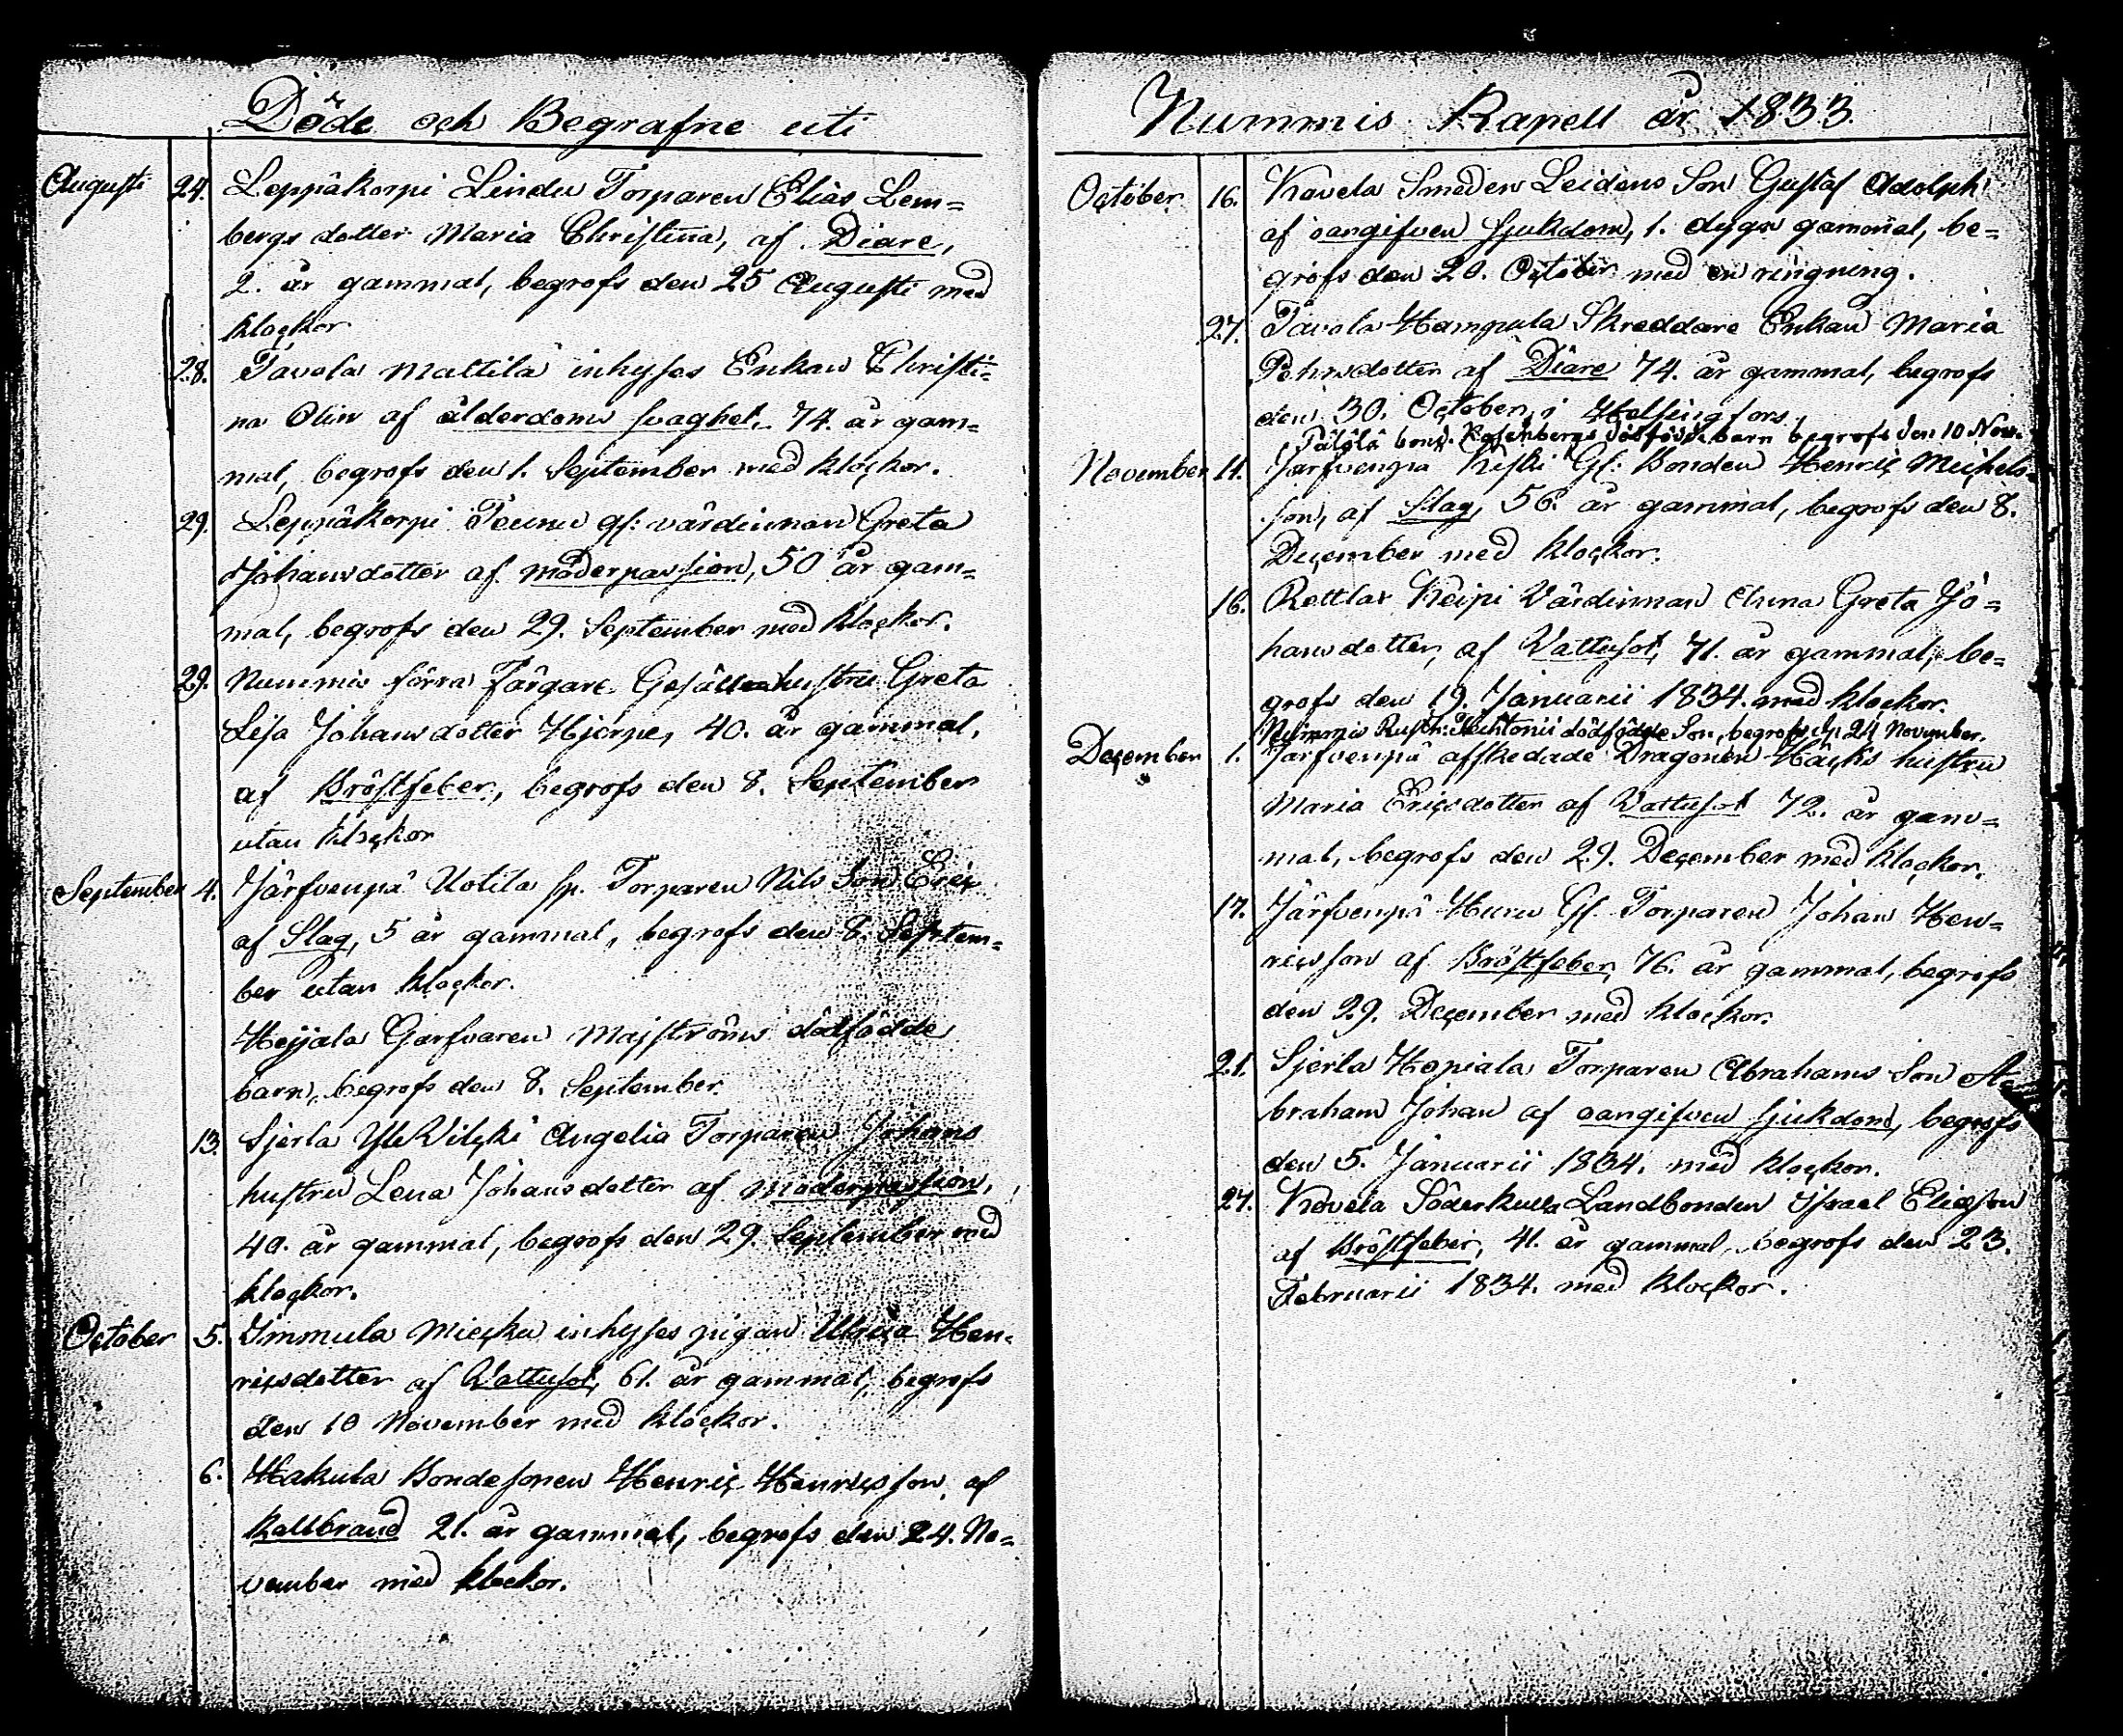 Döde och Begrafne uti
Augusti 24. Leppäkorpi Lindu Torparen Elias Lem=
bergs dotter Maria Christina, af Diare,
2. år gammal, begrofs den 25 Augusti med
klockor
28. Tavola Mattila inhyses Enkan Christi=
na Olin af ålderdoms svaghet, 74. år gam=
mal, begrofs den 1. September med klockor.
29. Leppäkorpi Teunu gf: värdinnan Greta
Johansdotter af moderpassion, 50 år gam=
mal, begrofs den 29. September med klockor.
29. Nummis förra Färgare Gesällen hustru Greta
Lisa Johansdotter Hjerpe, 40. år gammal,
af Bröstfeber, begrofs den 8. September
utan klockor
September 4. Järfvenpä Uotila sp. Torparen Nils Son Eric
af Slag, 5 år gammal, begrofs den 8. Septem=
ber utan klockor.
Hejjala Garfvaren Majströms dödfödde
barn, begrofs den 8. September.
13. Sjerla Yli Vilcki Angelia Torparen Johans
hustru Lena Johansdotter af moderpassion,
40. år gammal, begrofs den 29. September med
klockor.
October 5. Immula Miecku inhyses pigan Ulrica Hen=
ricsdotter af Vattusot, 61. år gammal, begrofs
den 10 November med klockor.
6. Hakula Bondesonen Henric Henricsson, af
kallbrand 21. år gammal, begrofs den 24. No=
vember med klockor.
Nummis Kapell år 1833.
October 16. Kovela Smeden Leidens Son Gustaf Adolph
af oangifven sjukdom, 1. dygn gammal, be=
grofs den 20. October med en ringning.
27. Tavola Hampula Skreddare Enkan Maria
Pehrsdotter af Diare 74. år gammal, begrofs
den 30. October i Helsingfors.
Pälölä bond. Rosenbergs dödfödde barn begrofs den 10 Nov.
November 14. Järfvenpä Kiski Gf: Bonden Henric Michels=
son, af Slag, 56. år gammal, begrofs den 8.
December med klockor.
16. Retlax Keipi Värdinnan Anna Greta Jo=
hansdotter, af Vattusot, 71. år gammal, be=
grofs den 19. Januarii 1834. med klockor.
Nummis Rusth: dödfödde Son, begrofs d. 24 November.
December 1. Järfvenpä affskedade Dragonen Häcks hustru
Maria Ericsdotter af Vattusot 72. år gam=
mal, begrofs den 29. December med klockor.
17. Järfvenpä Huru Gf. Torparen Johan Hen=
ricsson af Bröstfeber, 76. år gammal, begrofs
den 29. December med klockor.
21. Sjerla Hopiala Torparen Abrahams Son A=
braham Johan af oangifven sjukdom, begrofs
den 5. Januarii 1834. med klockor.
27. Kovela Söderkulla Landbonden Israel Eliasson
af Bröstfeber, 41. år gammal, begrofs den 23.
Februarii 1834. med klockor.